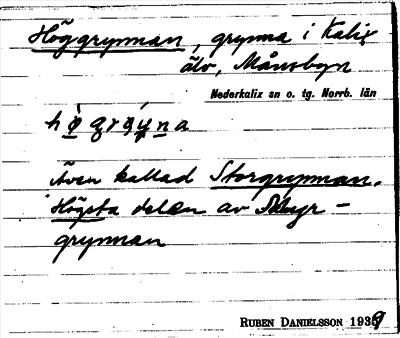 Höggrynnan, grynna i Kalix
älv, Månsbyn
Nederkalix sn o. tg. Norrb. län
Även kallad Storgrynnan.
Högsta delen av
grynnan
RUBEN DANIELSSON 1939